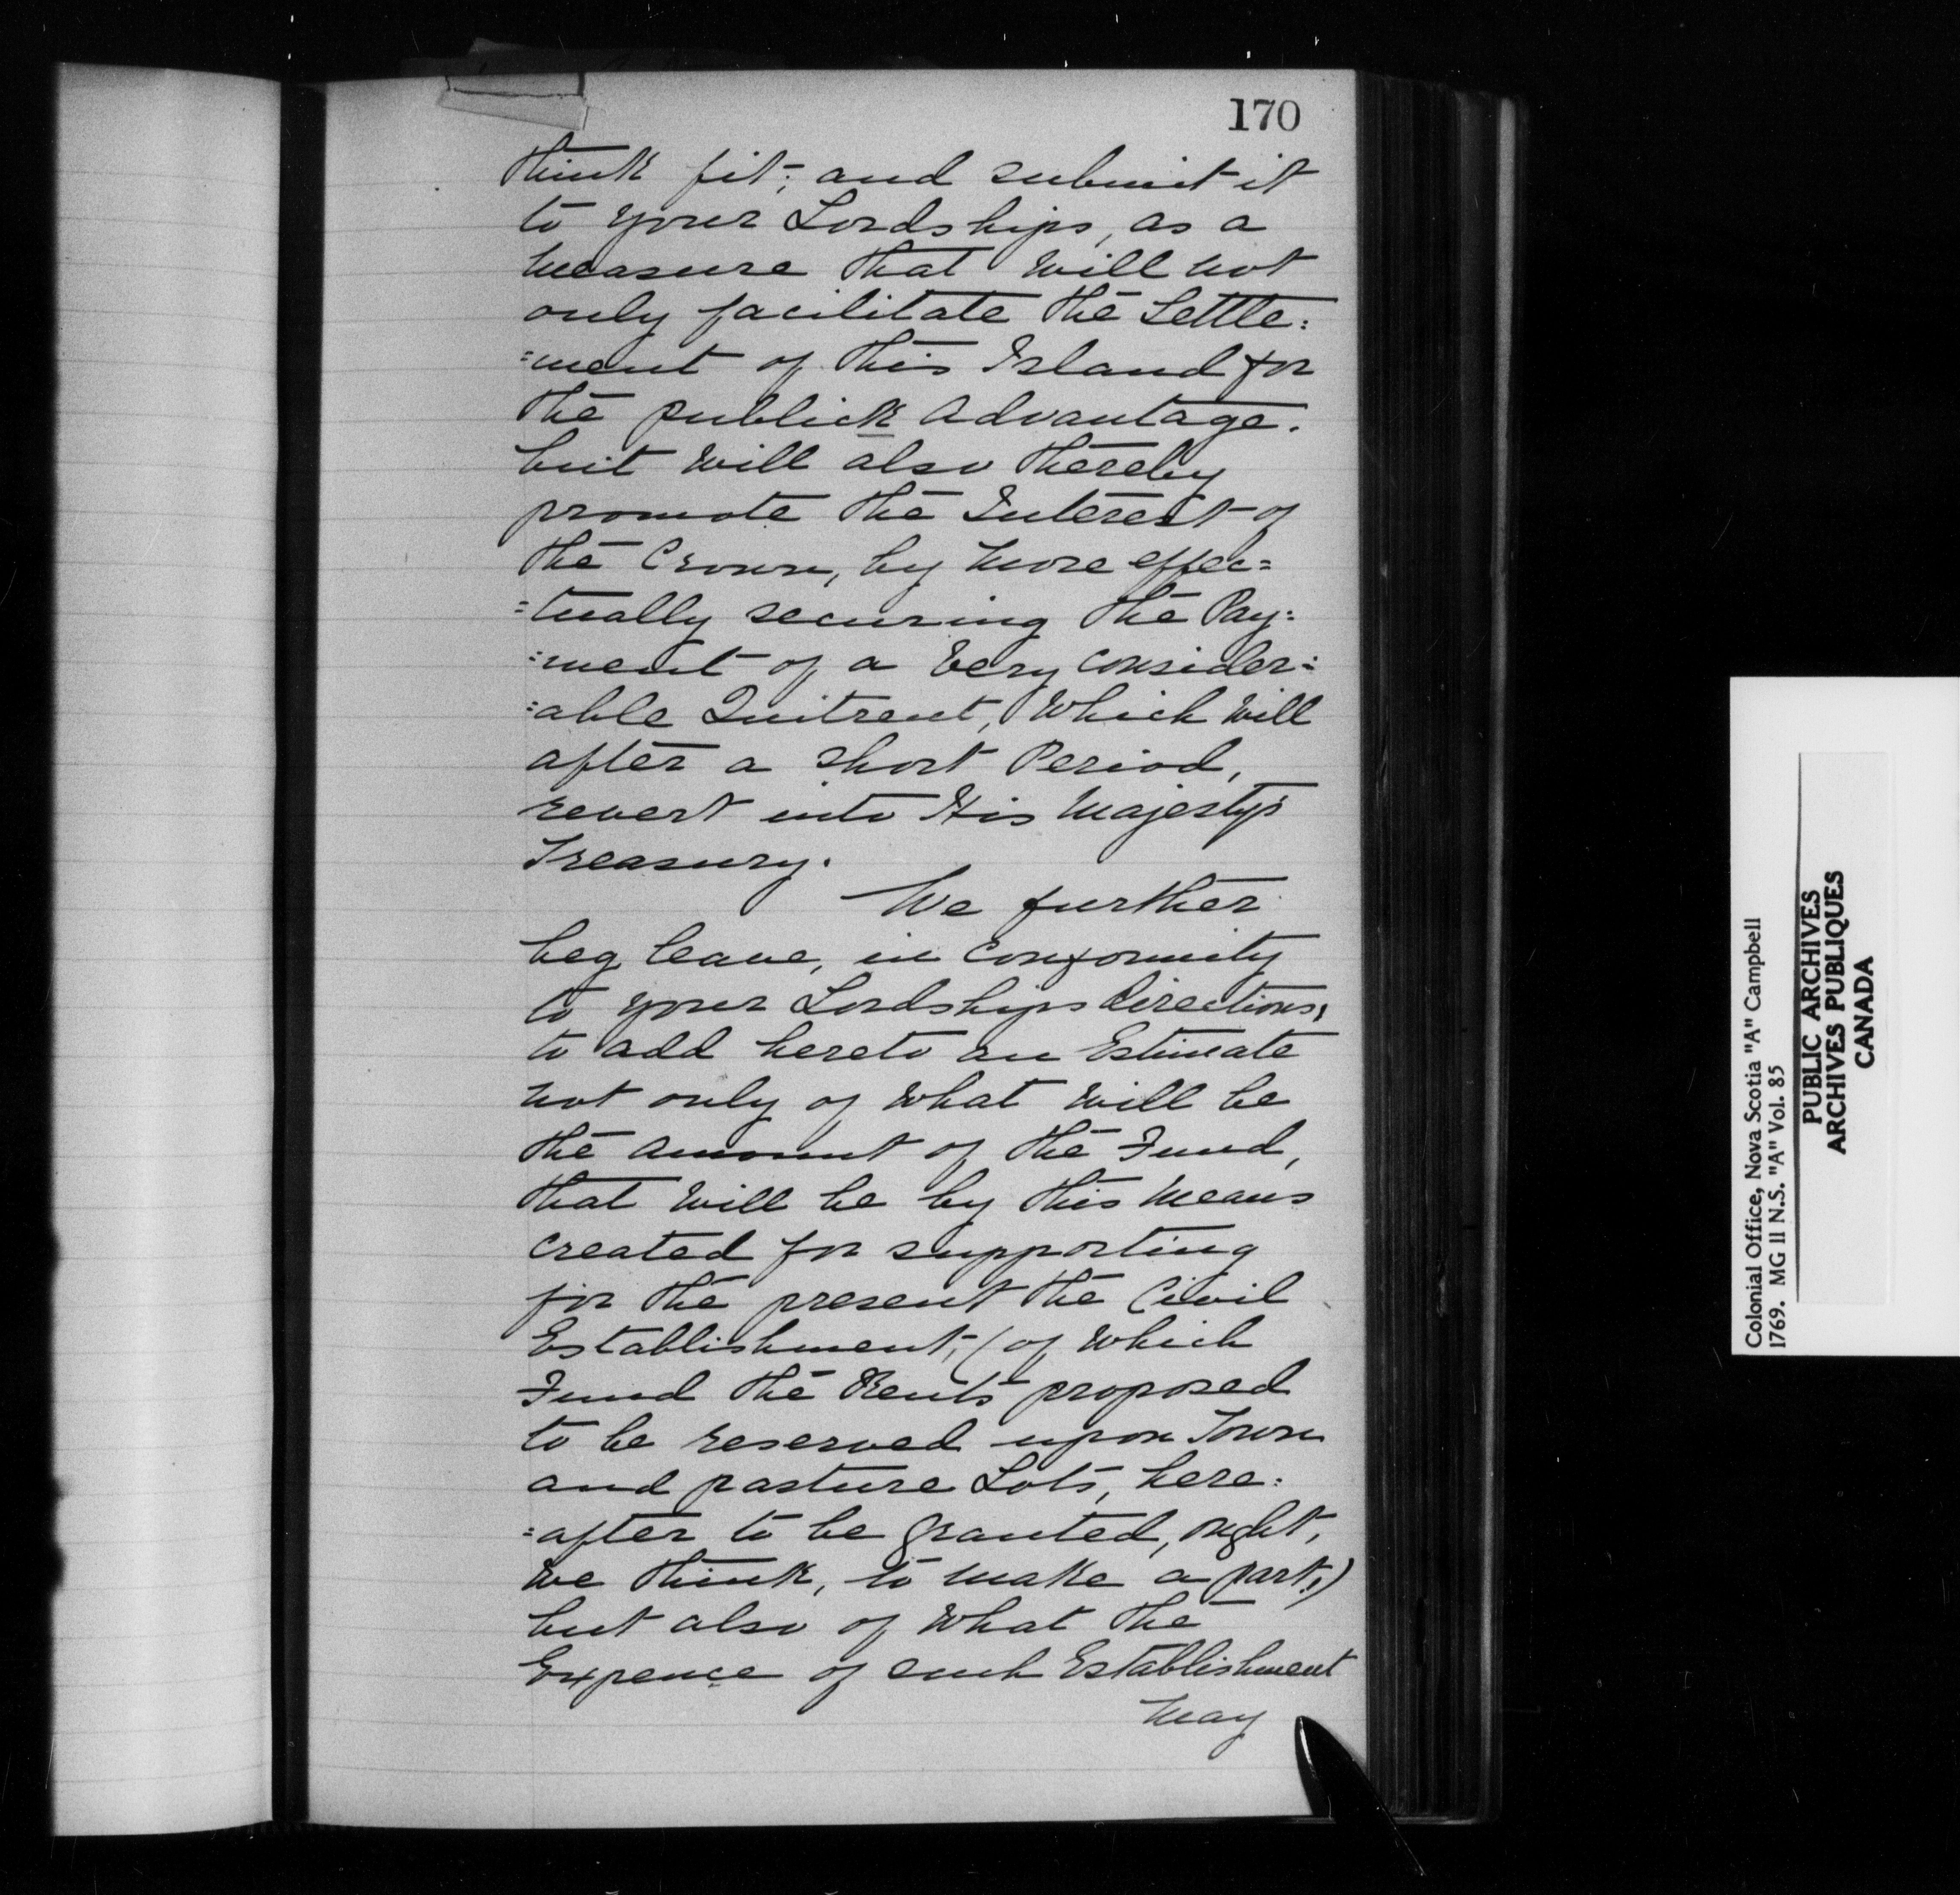 170
think fit; and submit it
to your Lordships, as a
measure that will not
only facilitate the Settle:
=ment of this Island for
the publick Advantage.
but will also thereby
promote the Interest of
the Crown, by more effec=
=tually securing the Pay:
:ment of a very consider:
:able Quitrent, which will
after a short Period,
revert into His Majesty's
Treasury.
We further
beg leave, in conformity
to your Lordships directions,
to add hereto an Estimate
not only of what will be
the amount of the Fund,
that will be by this means
created for supporting
for the present the Civil
Establishment, (of which
Fund the Rents proposed
to be reserved upon Town
and pasture Lots, here:
=after to be granted, ought,
we think, to make a part,)
but also of what the
Expence of such Establishment
may
Colonial Office, Nova Scotia "A" Campbell
1769. MG 11 N.S. "A" Vol. 85
PUBLIC ARCHIVES
ARCHIVES PUBLIQUES
CANADA